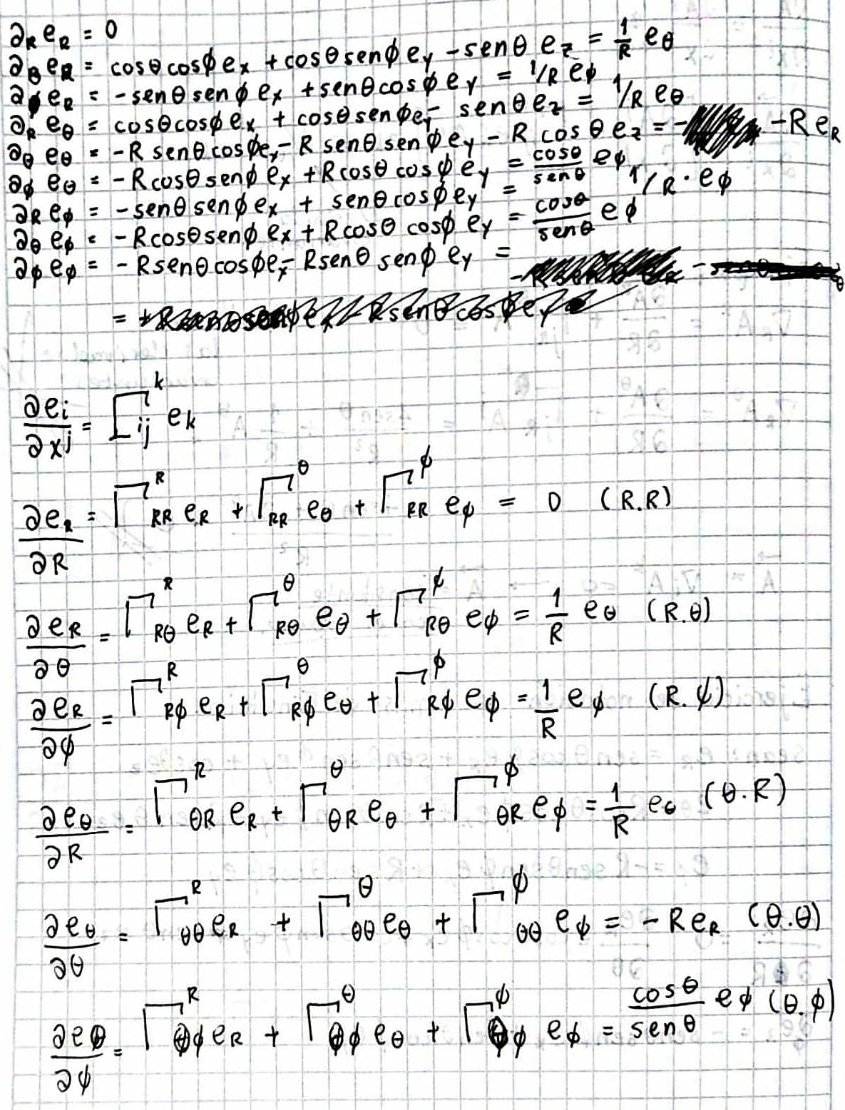 ∂_R e_R = 0
∂_θ e_R = cosθcosϕ e_x + cosθsenϕ e_y - senθ e_z = 1/R e_θ
∂_ϕ e_R = -senθ senϕ e_x + senθcosϕ e_y = 1/R e_ϕ
∂_R e_θ = cosθcosϕ e_x + cosθ senϕ e_y - senθ e_z = 1/R e_θ
∂_θ e_θ = -R senθ cosϕ e_x - R senθ senϕ e_y - R cosθ e_z = - -R e_R
∂_ϕ e_θ = -R cosθ senϕ e_x + R cosθ cosϕ e_y = cosθ/senθ e_ϕ
∂_R e_ϕ = -senθ senϕ e_x + senθcosϕ e_y = 1/R · e_ϕ
∂_θ e_ϕ = -Rcosθsenϕ e_x + Rcosθ cosϕ e_y = cosθ/senθ e_ϕ
∂_ϕ e_ϕ = -Rsenθcosϕ e_x - Rsenθ senϕ e_y =
=
∂e_i/∂x^j = Γ^k_ij e_k
∂e_R/∂R = Γ^R_RR e_R + Γ^θ_RR e_θ + Γ^ϕ_RR e_ϕ = 0 (R.R)
∂e_R/∂θ = Γ^R_Rθ e_R + Γ^θ_Rθ e_θ + Γ^ϕ_Rθ e_ϕ = 1/R e_θ (R.θ)
∂e_R/∂ϕ = Γ^R_Rϕ e_R + Γ^θ_Rϕ e_θ + Γ^ϕ_Rϕ e_ϕ = 1/R e_ϕ (R.ϕ)
∂e_θ/∂R = Γ^R_θR e_R + Γ^θ_θR e_θ + Γ^ϕ_θR e_ϕ = 1/R e_θ (θ.R)
∂e_θ/∂θ = Γ^R_θθ e_R + Γ^θ_θθ e_θ + Γ^ϕ_θθ e_ϕ = -R e_R (θ.θ)
∂e_θ/∂ϕ = Γ^R_θϕ e_R + Γ^θ_θϕ e_θ + Γ^ϕ_θϕ e_ϕ = cosθ/senθ e_ϕ (θ.ϕ)